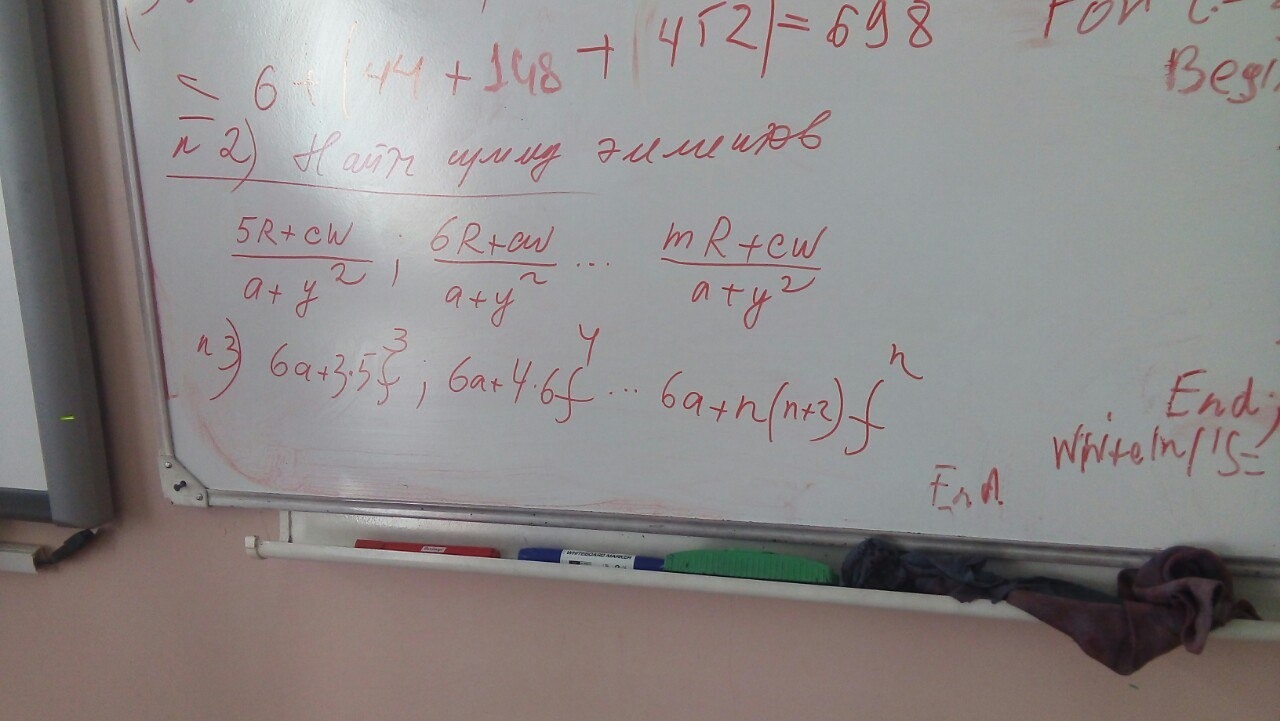 = 6 + (44 + 148 + |452| = 698
For
Begin
п 2) Найти сумму элементов
5R+cw / a+y² ; 6R+cw / a+y² ... mR+cw / a+y²
п 3) 6a+3·5f³ ; 6a+4·6f⁴ ... 6a+n(n+2)fⁿ
End;
Writeln('S=
End.
WHITEBOARD MARKER